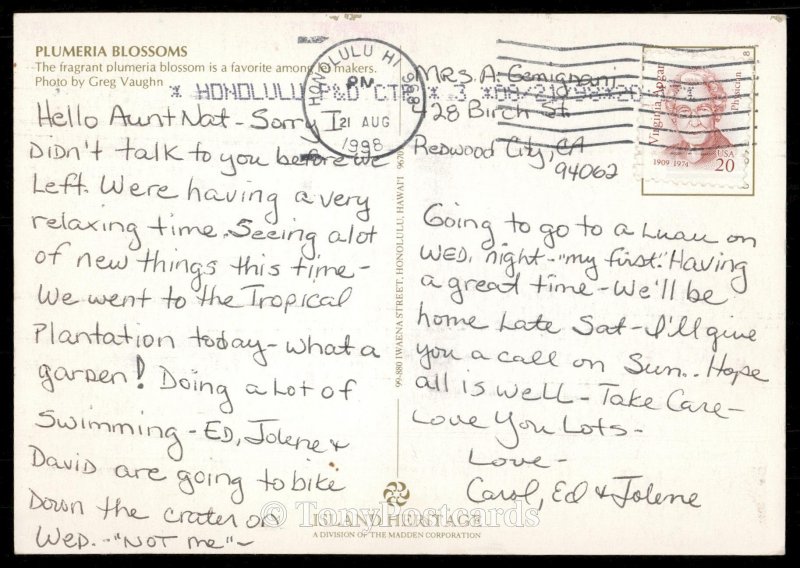 PLUMERIA BLOSSOMS
The fragrant plumeria blossom is a favorite among lei makers.
Photo by Greg Vaughn
HONOLULU HI 968
PM
21 AUG
1998
* HONOLULU P&D CTR * 3 * 08/21/98 *20
Mrs. A. Gemignani
28 Birch St.
Redwood City, CA
94062
Virginia Apgar
Physician
1909 1974
USA
20
Hello Aunt Nat - Sorry I
Didn't talk to you before we
Left. Were having a very
relaxing time. Seeing a lot
of new things this time -
We went to the Tropical
Plantation today - what a
garden! Doing a Lot of
Swimming - Ed, Jolene &
David are going to bike
Down the crater on
Wed. - "NOT me" -
99-880 IWAENA STREET, HONOLULU, HAWAI'I 9670
Going to go to a Luau on
WED. night - "my first." Having
a great time - We'll be
home Late Sat - I'll give
you a call on Sun.. Hope
all is well - Take Care -
Love You Lots -
Love -
Carol, Ed & Jolene
© TonyPostcards
ISLAND HERITAGE
A DIVISION OF THE MADDEN CORPORATION